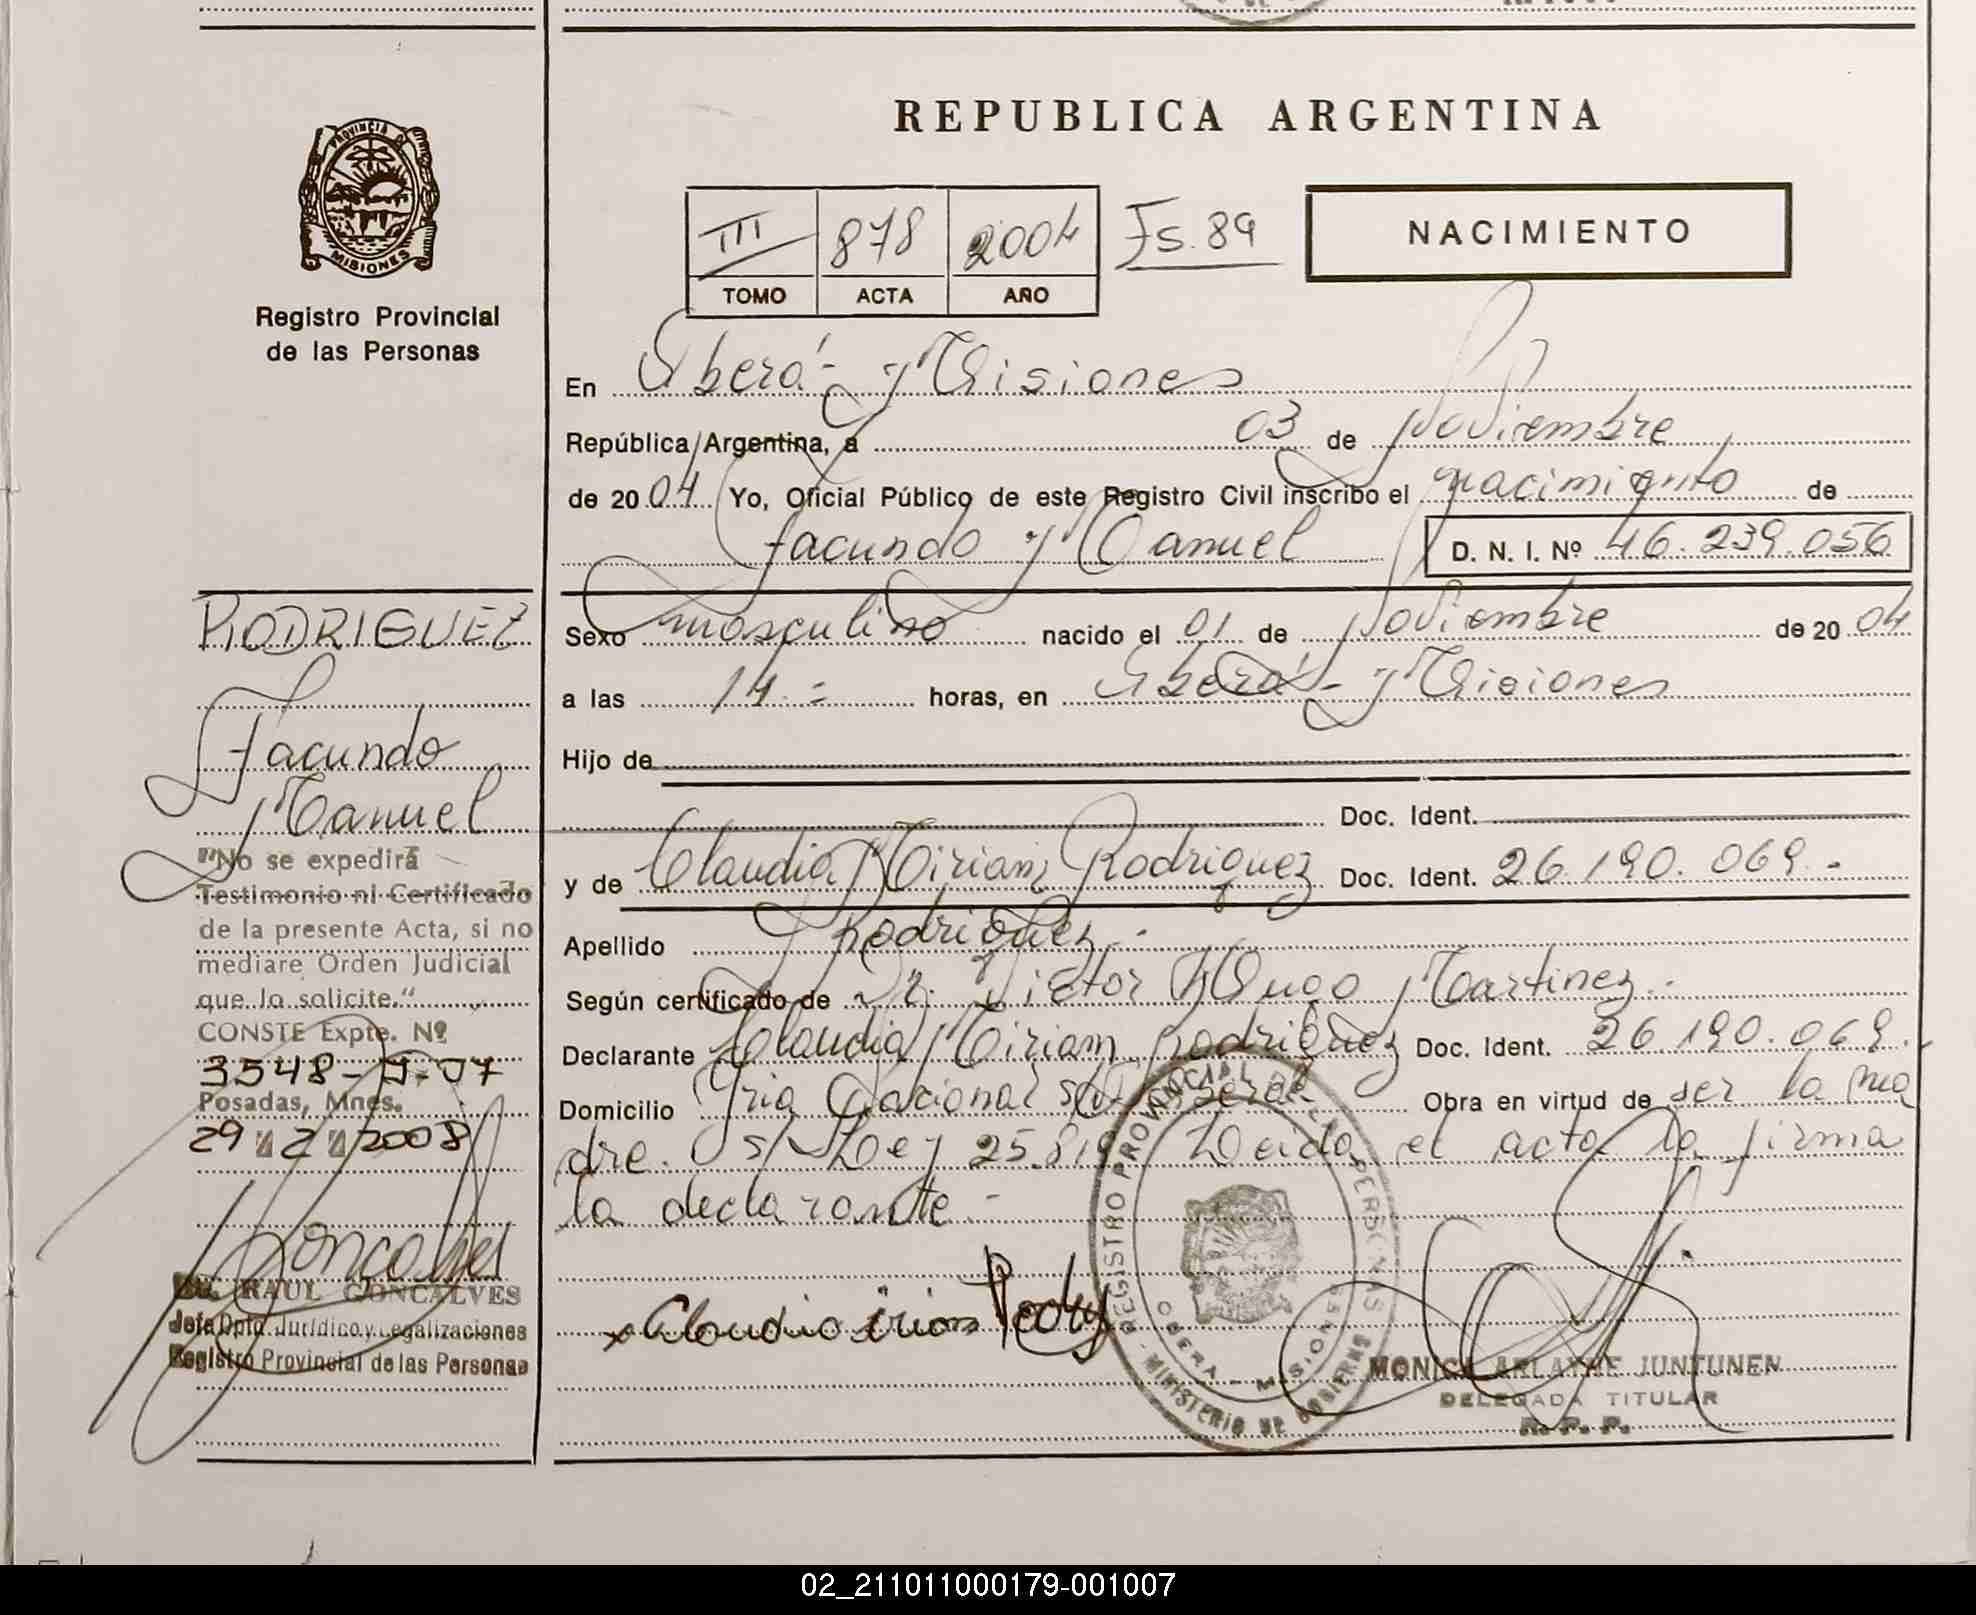 REPUBLICA ARGENTINA
PROVINCIA DE
MISIONES
Registro Provincial
de las Personas
III 878 2004 Fs. 89
TOMO ACTA AÑO
NACIMIENTO
En Oberá - Misiones
República Argentina, a 03 de Noviembre
de 2004 Yo, Oficial Público de este Registro Civil inscribo el nacimiento de
Facundo Manuel D. N. I. Nº 46.239.056
Sexo masculino nacido el 01 de Noviembre de 2004
a las 14.= horas, en Oberá - Misiones
Hijo de
Doc. Ident.
y de Claudia Miriam Rodriguez Doc. Ident. 26.190.069.-
Apellido Rodriguez.-
Según certificado de Dr. Victor Hugo Martinez.-
Declarante Claudia Miriam Rodriguez Doc. Ident. 26.190.069.
Domicilio Obra en virtud de ser la ma
dre. s/ Ley 25.819 Leida el acta la firma
la declarante -
RODRIGUEZ
Facundo
Manuel
"No se expedirá
Testimonio ni Certificado
de la presente Acta, si no
mediare Orden Judicial
que lo solicite."
CONSTE Expte. Nº
3548- -07
Posadas, Mnes.
29 2 2008
Goncalves
RAUL GONCALVES
Jefe Dpto. Jurídico y Legalizaciones
Registro Provincial de las Personas
REGISTRO PROVINCIAL DE LAS PERSONAS
OBERA - MISIONES
MINISTERIO DE GOBIERNO
MONICA ARLAYNE JUNTUNEN
DELEGADA TITULAR
R. P. P.
02_211011000179-001007